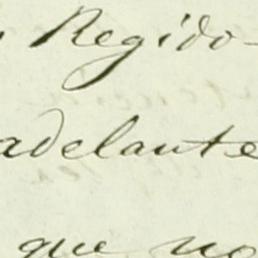 Regido-
adelante
que no